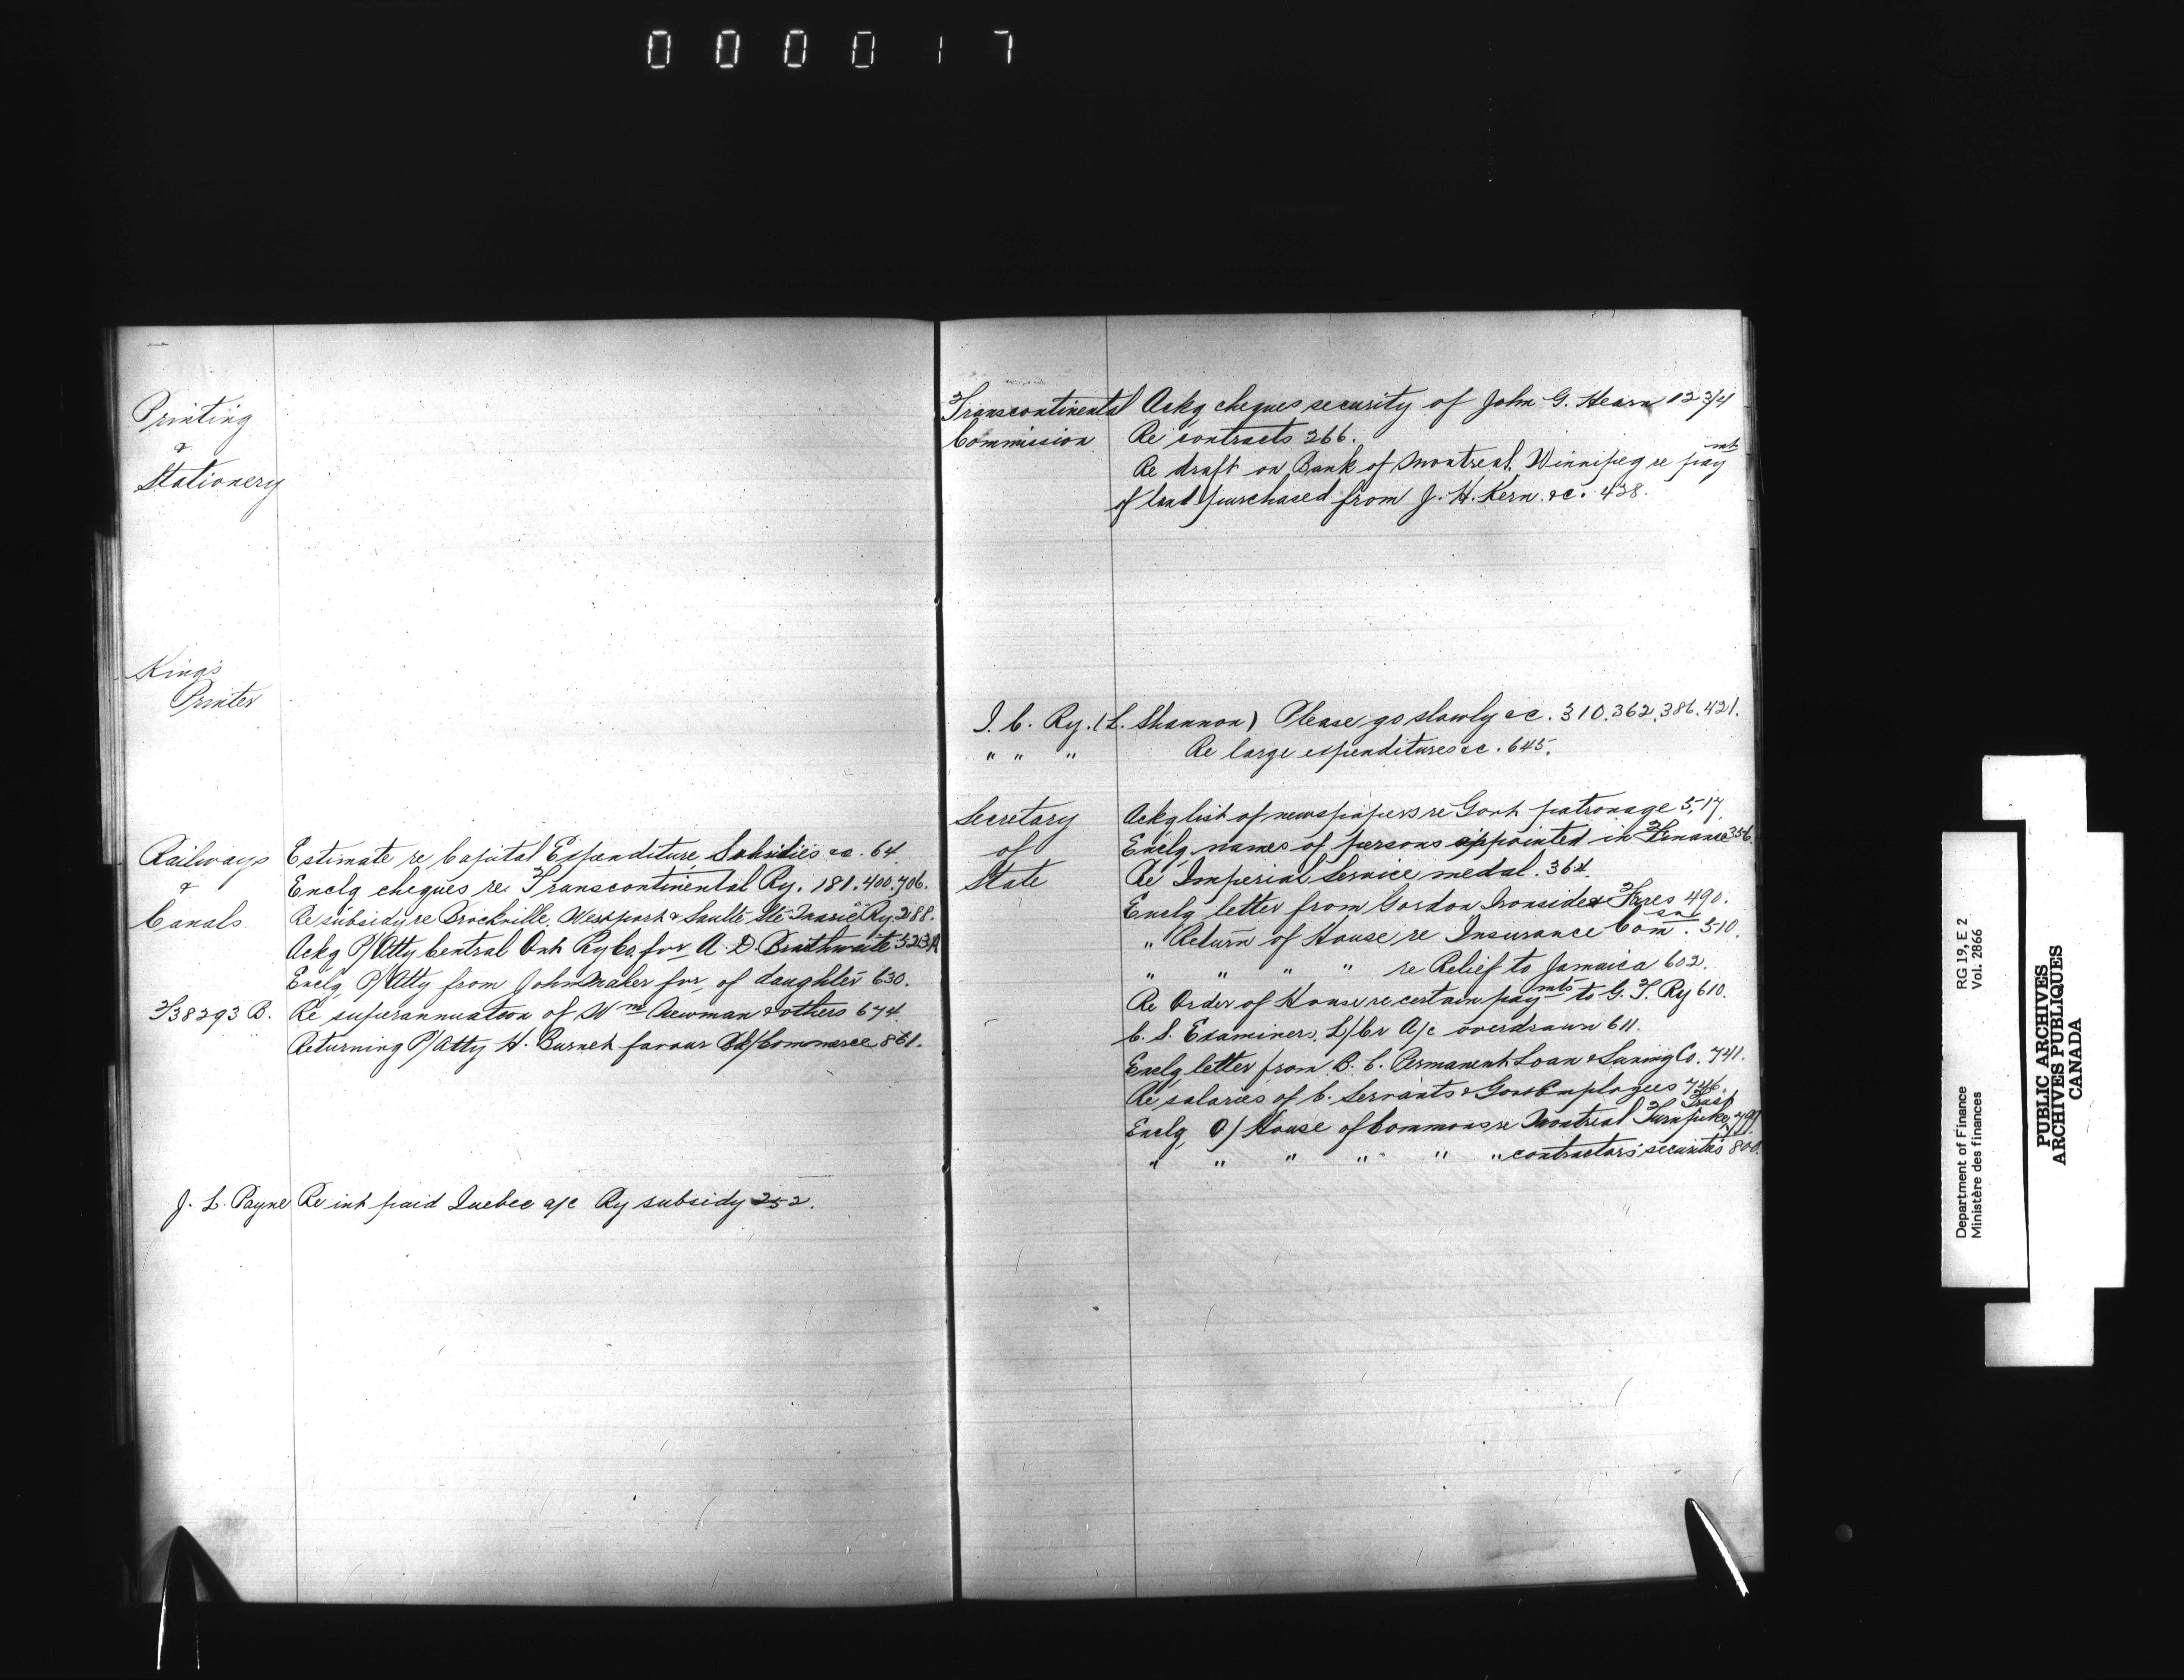 000017
Printing
&
Stationery
King's
Printer
Railways
&
Canals
Estimate re Capital Expenditure Subsidies &c. 64.
Enclg cheques re Transcontinental Ry. 181.400.706.
Re subsidy re Brockville, Westport & Saulte Ste Marie Ry. 288.
Ackg P/Atty Central Ont Ry Co. for A. D. Braithwaite
Enclg P/Atty from John Maker for of daughter 630.
38293 B. Re superannuation of Wm Newman & others 674.
Returning P/Atty H. Burnet favour Bk/Commerce 861.
J. L. Payne Re int paid Quebec a/c Ry subsidy 252.
Transcontinental
Commission
Ackg cheques security of John G. Hearn 123/4
Re contracts 266.
Re draft on Bank of Montreal, Winnipeg re paymt
of land purchased from J. H. Kern &c. 438.
I. C. Ry. (L. Shannon) Please go slowly &c. 310.362.386.421.
" " " Re large expenditures &c. 645.
Secretary
of
State
Ackg list of newspapers re Govt patronage 5,17.
Enclg names of persons appointed in Finance 356.
Re Imperial Service medal. 364.
Enclg letter from Gordon Ironside & Fares 490.
" Return of House re Insurance Comsn. 510.
" " " " re Relief to Jamaica 602.
Re Order of House re certain paymts to G. T. Ry 610.
C. S. Examiners, L/Cr A/c overdrawn 611.
Enclg letter from B. C. Permanent Loan & Saving Co. 741.
Re salaries of C. Servants & Govt Employees 746.
Enclg O/ House of Commons re Montreal Turnpike Trust 799.
" " " " " " contractors' securities 800.
Department of Finance
Ministère des finances
RG 19, E 2
Vol. 2866
PUBLIC ARCHIVES
ARCHIVES PUBLIQUES
CANADA